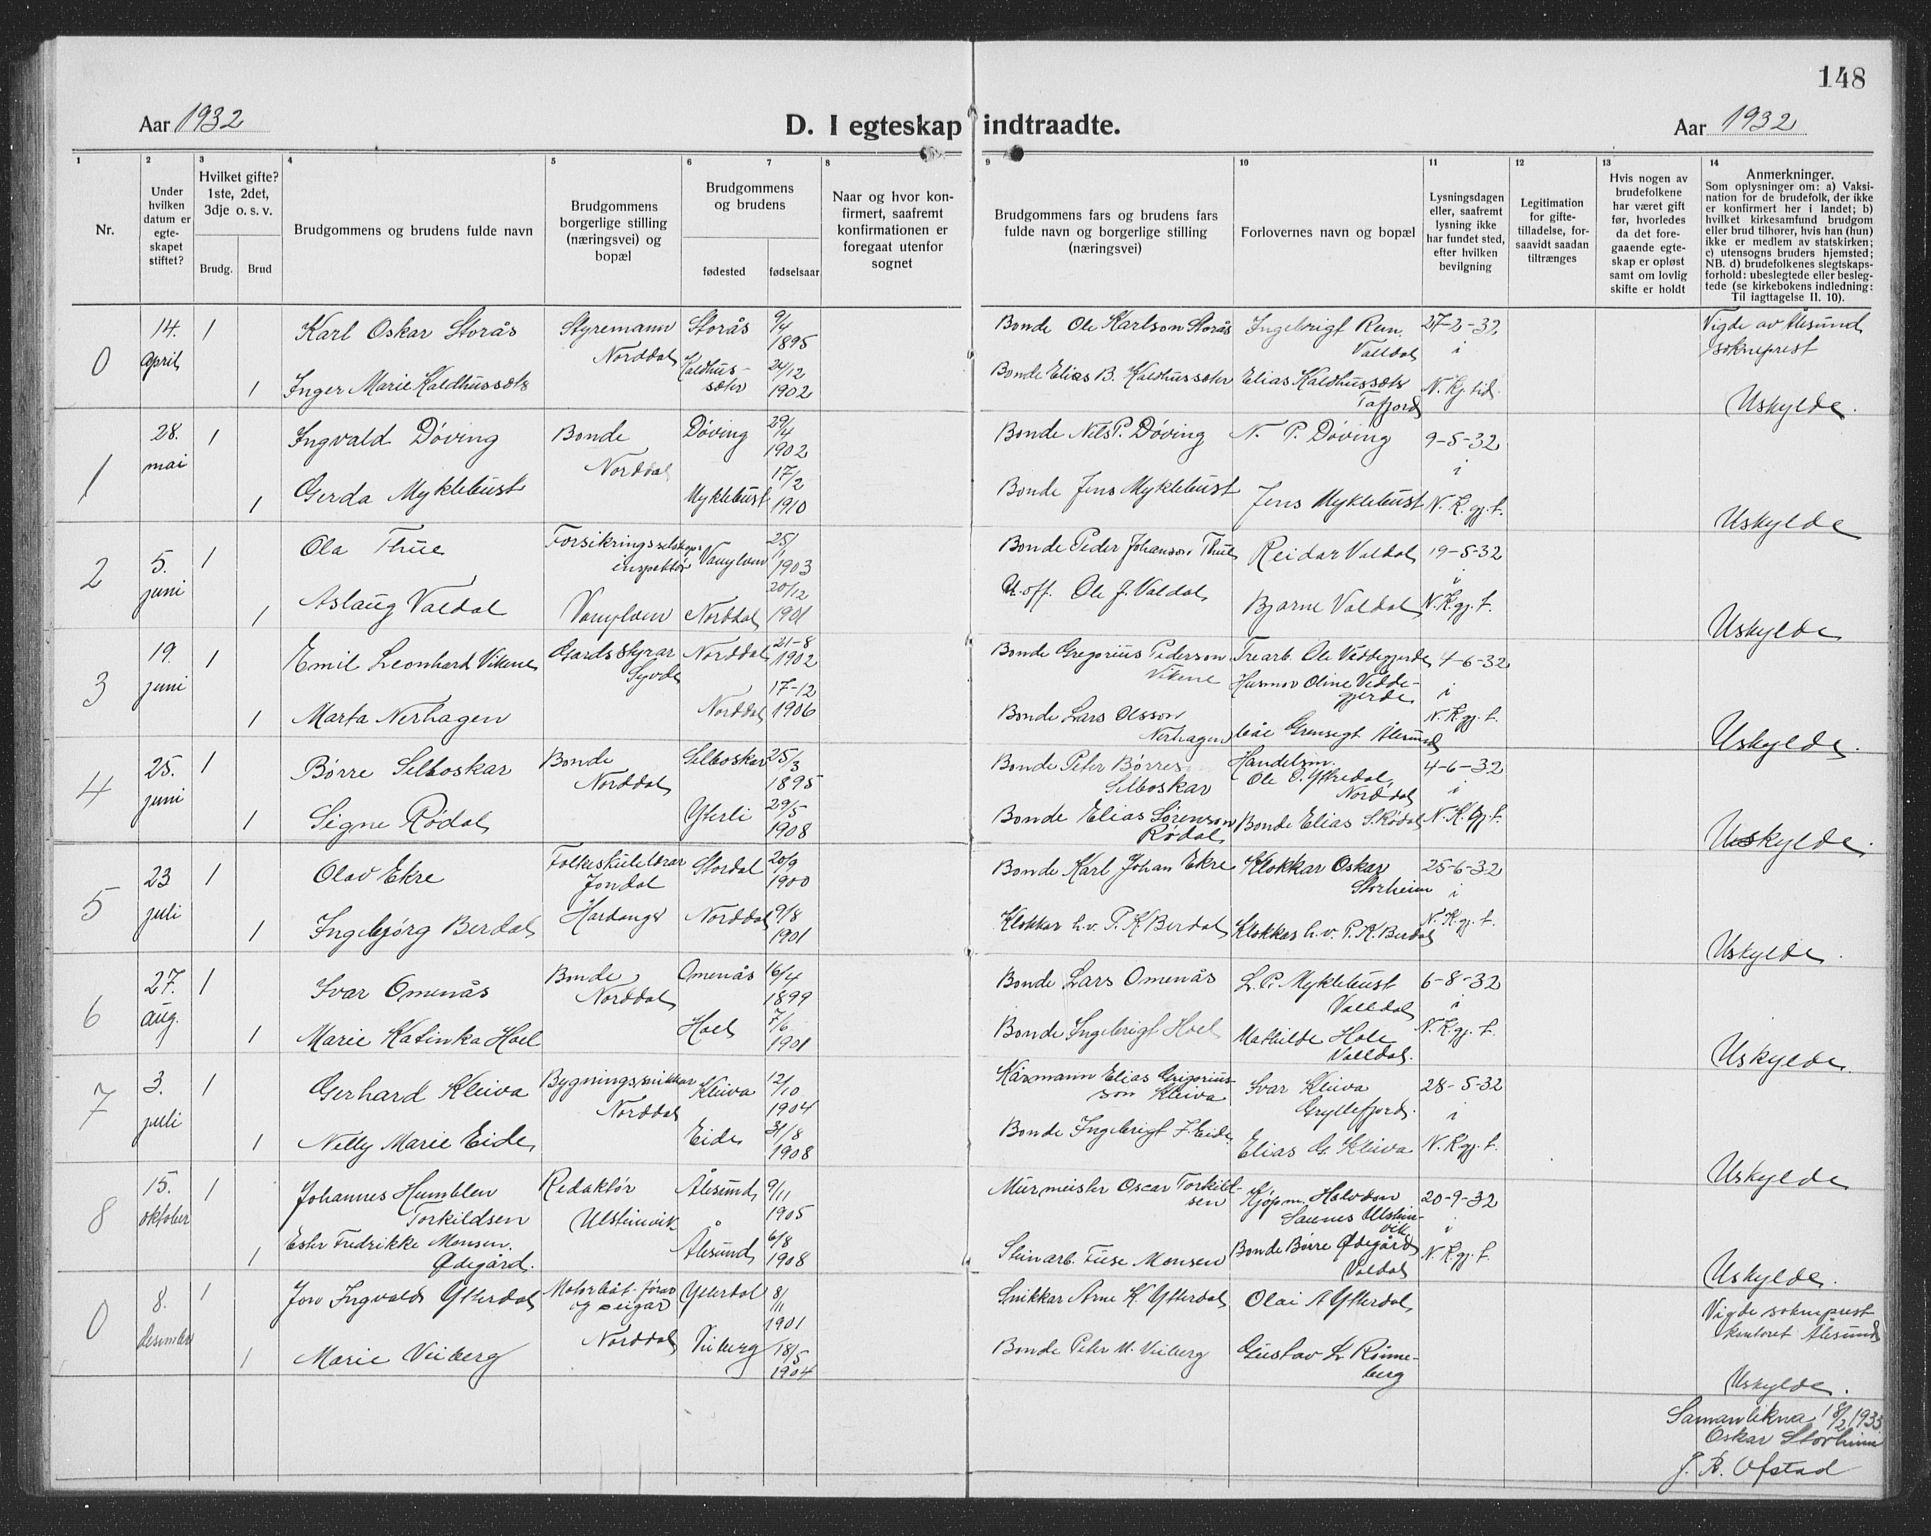 148
Aar 1932
D. I egteskap indtraadte.
Aar 1932
1 2 3 4 5 6 7 8 9 10 11 12 13 14
Nr.
Under hvilken datum er egte-skapet stiftet?
Hvilket gifte? 1ste, 2det, 3dje o. s. v.
Brudg. Brud
Brudgommens og brudens fulde navn
Brudgommens borgerlige stilling (næringsvei) og bopæl
Brudgommens og brudens
fødested fødselsaar
Naar og hvor kon-firmert, saafremt konfirmationen er foregaat utenfor sognet
Brudgommens fars og brudens fars fulde navn og borgerlige stilling (næringsvei)
Forlovernes navn og bopæl
Lysningsdagen eller, saafremt lysning ikke har fundet sted, efter hvilken bevilgning
Legitimation for gifte-tilladelse, for-saavidt saadan tiltrænges
Hvis nogen av brudefolkene har været gift før, hvorledes da det fore-gaaende egte-skap er opløst samt om lovlig skifte er holdt
Anmerkninger.
Som oplysninger om: a) Vaksi-nation for de brudefolk, der ikke er konfirmert her i landet; b) hvilket kirkesamfund brudgom eller brud tilhører, hvis han (hun) ikke er medlem av statskirken; c) utensogns bruders hjemsted; NB. d) brudefolkenes slegtskaps-forhold: ubeslegtede eller besleg-tede (se kirkebokens indledning: Til iagttagelse II. 10).
0 14. april 1 Karl Oskar Storås Styremann Norddal Storås 9/4 1895 Bonde Ole Karlson Storås Ingebrigt Rem, Valldal 27-2-32 i Vigde av Ålesund sokneprest
1 Inger Marie Kaldhussæter Kaldhus-sæter 24/12 1902 Bonde Elias B. Kaldhussæter Elias Kaldhussæter Tafjord N. Kj. tid. Uskylde.
1 28. mai 1 Ingvald Døving Bonde Norddal Døving 29/4 1902 Bonde Nels P. Døving N. P. Døving 9-5-32 i
1 Gerda Myklebust Myklebust 17/2 1910 Bonde Jens Myklebust Jens Myklebust N. K. gj. t. Uskylde
2 5. juni 1 Ola Thue Forsikringsselskaps inspektør Vanylven 25/1 1903 Bonde Peder Johanson Thue Reidar Valdal 19-5-32 i
1 Aslaug Valdal Vanylven Norddal 20/12 1901 U.off. Ole J. Valdal Bjarne Valdal N. K. gj. t. Uskylde
3 19. juni 1 Emil Leonhard Vikene Gardsstyrar Syvde Norddal 21-8 1902 Bonde Gregorius Pederson Vikene Trearb. Ole Veddegjerde Husmor Oline Vedde-gjerde 4-6-32 i
1 Marta Nerhagen Norddal 17-12 1906 Bonde Lars Olsson Nerhagen Ålesund N. K. gj. t. Uskylde.
4 25. juni 1 Børre Selboskar Bonde Norddal Selboskar 25/3 1895 Bonde Peter Børres Selboskar Handelsm. Ole O. Ytredal, Norddal 4-6-32 i
1 Signe Rødal Ytterli 29/5 1908 Bonde Elias Sørenson Rødal Bonde Elias S. Rødal N. K. gj. t. Uskylde.
5 23 juli 1 Olav Ekre Folkeskulelærar Jondal Stordal 20/9 1900 Bonde Karl Johan Ekre Klokkar Oskar Storheim 25-6-32 i
1 Ingebjørg Berdal Hardanger Norddal 9/8 1901 Klokkar h.v. P. K. Berdal Klokkar h.v. P. K. Berdal N. K. gj. t. Uskylde.
6 27. aug. 1 Ivar Omenås Bonde, Norddal Omenås 16/4 1899 Bonde Lars Omenås L. P. Myklebust Valldal 6-8-32 i
1 Marie Katinka Hoel Hoel 7/6 1901 Bonde Ingebrigt Hoel Mathilde Hole Valldal. N. K. gj. t. Uskylde.
7 3. juli 1 Gerhard Kleiva Bygningssnikkar Norddal Kleiva 12/10 1904 Kårmann Elias Grigorius-son Kleiva Ivar Kleiva Gryllefjord. 28-5-32 i
1 Nelly Marie Eide Eide 31/8 1908 Bonde Ingebrigt J. Eide Elias G. Kleiva N. K. gj. t. Uskylde
8 15. oktober 1 Johannes Humblen Torkildsen Redaktør Ulsteinvik Ålesund 9/11 1905 Murmeister Oscar Torkild-sen Kjøpm. Halvdan Saunes Ulstein-vik 20-9-32 i
1 Ester Fredrikke Monsen Ødegård. Ålesund 6/8 1908 Steinarb. Tuse Monsen Bonde Børre Ødegård Valdal N. K. gj. t. Uskylde.
0 8. desember 1 Jon Ingvald Ytterdal Motorbåt-førar og eigar Norddal Ytterdal 8/11 1901 Snikkar Arne K. Ytterdal Olai A Ytterdal, Vigde sokneprest kontoret Ålesund
1 Marie Veiberg Veiberg 18/5 1904 Bonde Peter M. Veiberg Gustav L. Rønne-berg Uskylde.
Samanlikna 18/2 1933
Oskar Storheim
J. B. Ofstad